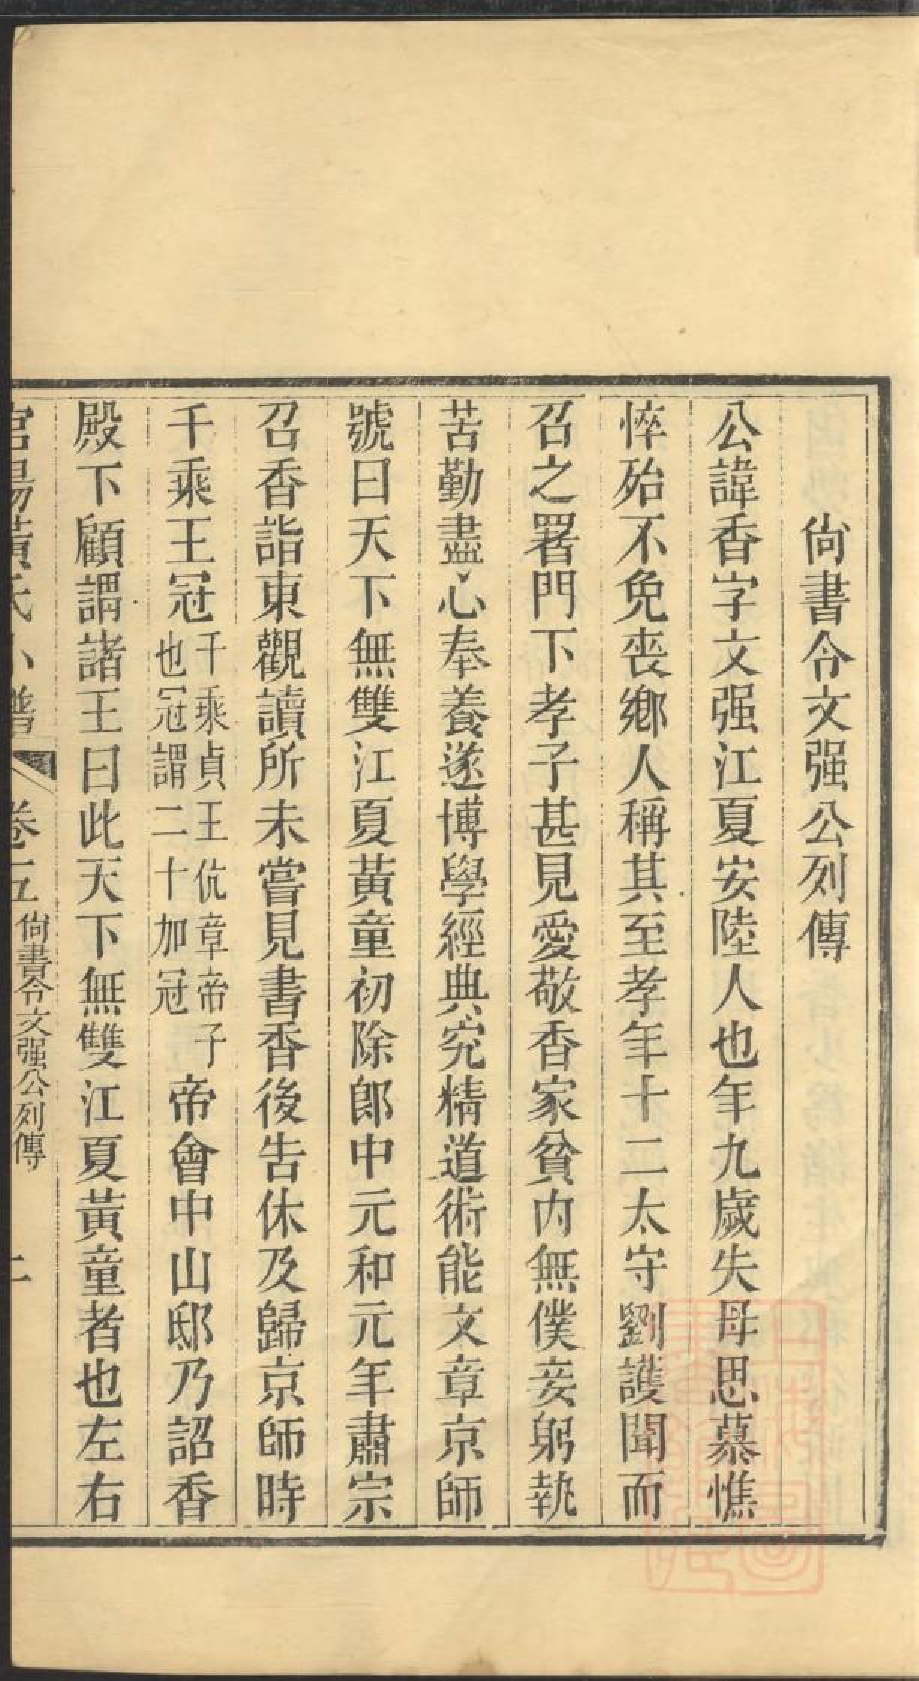 尙書令文强公列傳
公諱香字文强江夏安陸人也年九歲失母思慕憔
悴殆不免喪鄉人稱其至孝年十二太守劉護聞而
召之署門下孝子甚見愛敬香家貧內無僕妾躬執
苦勤盡心奉養遂博學經典究精道術能文章京師
號曰天下無雙江夏黃童初除郎中元和元年肅宗
召香詣東觀讀所未嘗見書香後告休及歸京師時
千乘王冠千乘貞王伉章帝子也冠謂二十加冠帝會中山邸乃詔香
殿下顧謂諸王曰此天下無雙江夏黃童者也左右
黃氏 譜 卷 五 尙書令文强公列傳